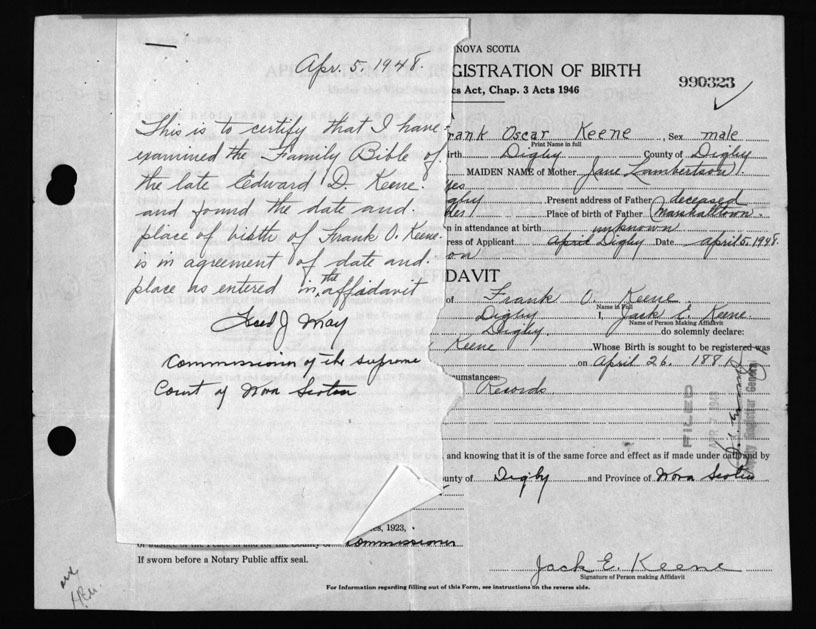 Apr. 5, 1948.
This is to certify that I have
examined the Family Bible of
the late Edward D. Keene.
and found the date and.
place of birth of Frank O. Keene.
is in agreement of date and.
place as entered in the affidavit
Fred J. May
Commissioner of the Supreme
Court of Nova Scotia
NOVA SCOTIA
GISTRATION OF BIRTH
990323
cs Act, Chap. 3 Acts 1946
rank Oscar Keene, Sex male
Print Name in full
irth Digby County of Digby
MAIDEN NAME of Mother Jane Lambertson
Present address of Father deceased
Place of birth of Father Marshalltown.
n in attendance at birth unknown
ress of Applicant April Digby Date april 5. 1948.
on
DAVIT
of Frank O. Keene
Name in Full
Digby I, Jack E. Keene.
Name of Person Making Affidavit
Digby. do solemnly declare:
Keene Whose Birth is sought to be registered was
on April 26. 1881
cumstances:
Records
FILED
APR 7 1948
Deputy Registrar General
, and knowing that it is of the same force and effect as if made under oath and by
unty of Digby and Province of Nova Scotia
es, 1923,
or Justice of the Peace in and for the County of Commissioner
If sworn before a Notary Public affix seal.
Jack E. Keene
Signature of Person making Affidavit
For Information regarding filling out of this Form, see instructions on the reverse side.